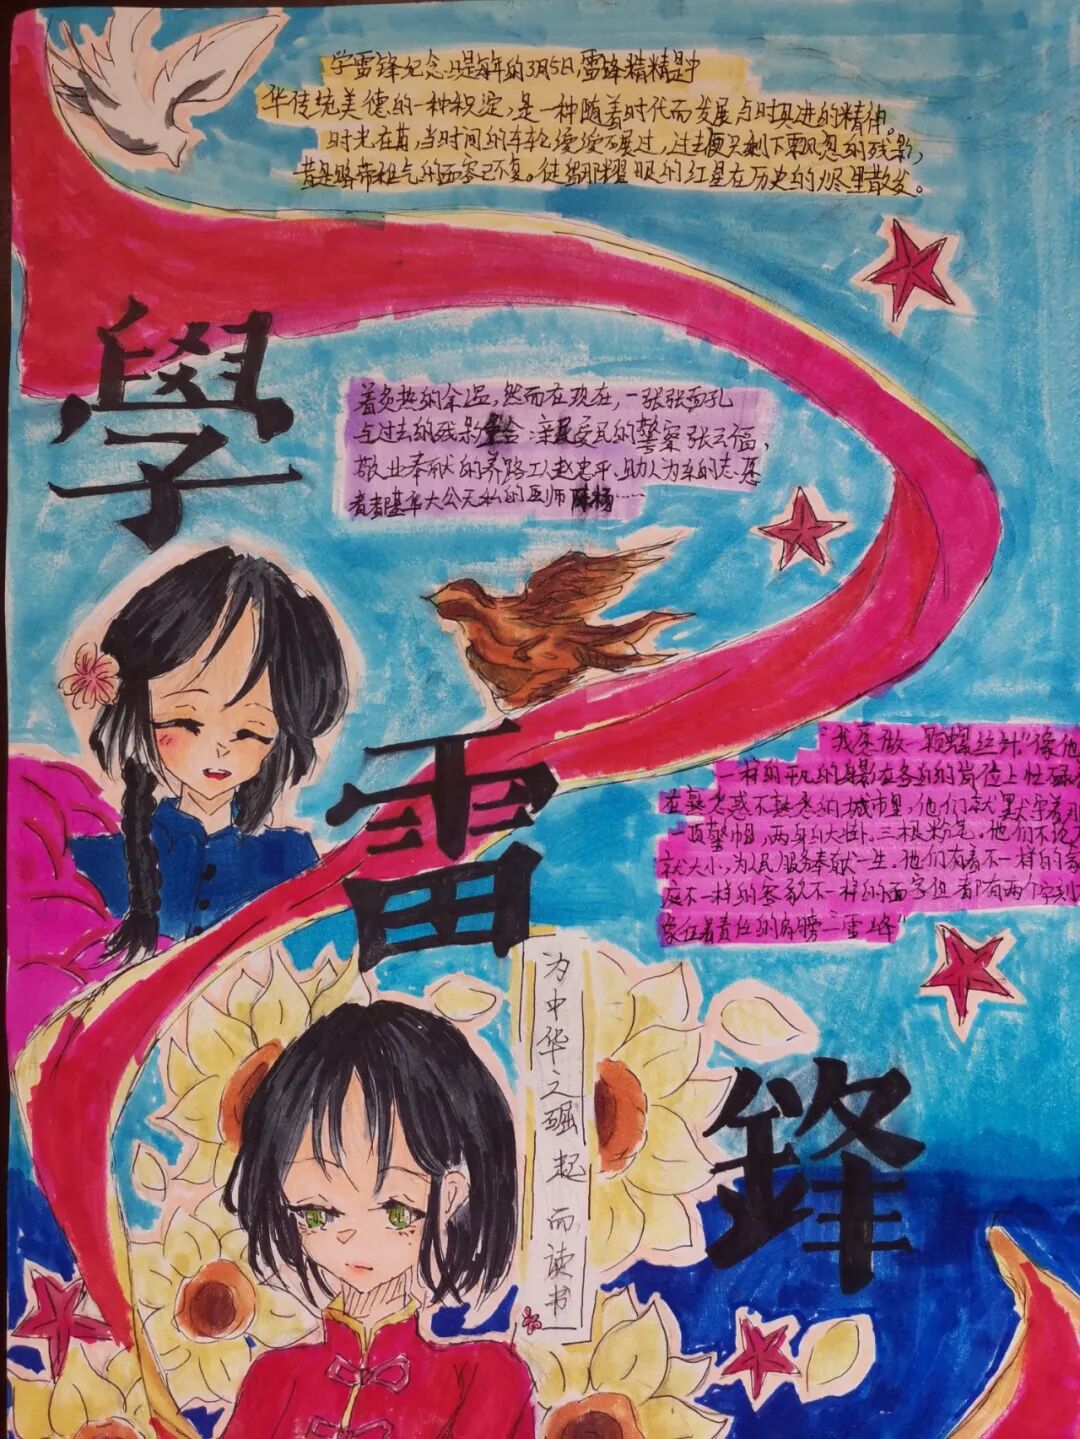 学雷锋纪念日是每年的3月5日,雷锋精精是中
华传统美德的一种积淀,是一种随着时代而发展与时具进的精神。
时光在苒,当时间的车轮缓缓碾过,过去便只剩下飘忽的残影,
昔是路带稚气的面容已不复。徒留那耀眼的红星在历史的烬里散发。
學
着炙热的余温,然而在现在,一张张面孔
与过去的残影重合:亲民爱民的警察张云福,
敬业奉献的养路工人赵忠平、助人为乐的志愿
者 大公无私的医师陈杨……
雷
"我愿做一颗螺丝钉"像他
一样的平凡的身影在各自的岗位上忙碌
在熟悉或不熟悉的城市里,他们就默守着
一顶警帽,两身白大卦,三根粉笔。他们不论
就大小,为人民服务奉献一生。他们有着不一样的家
庭不一样的容貌不一样的面字但都有两个字刻
象征着责任的肩膀:"雷锋"
为中华之崛起而读书
鋒